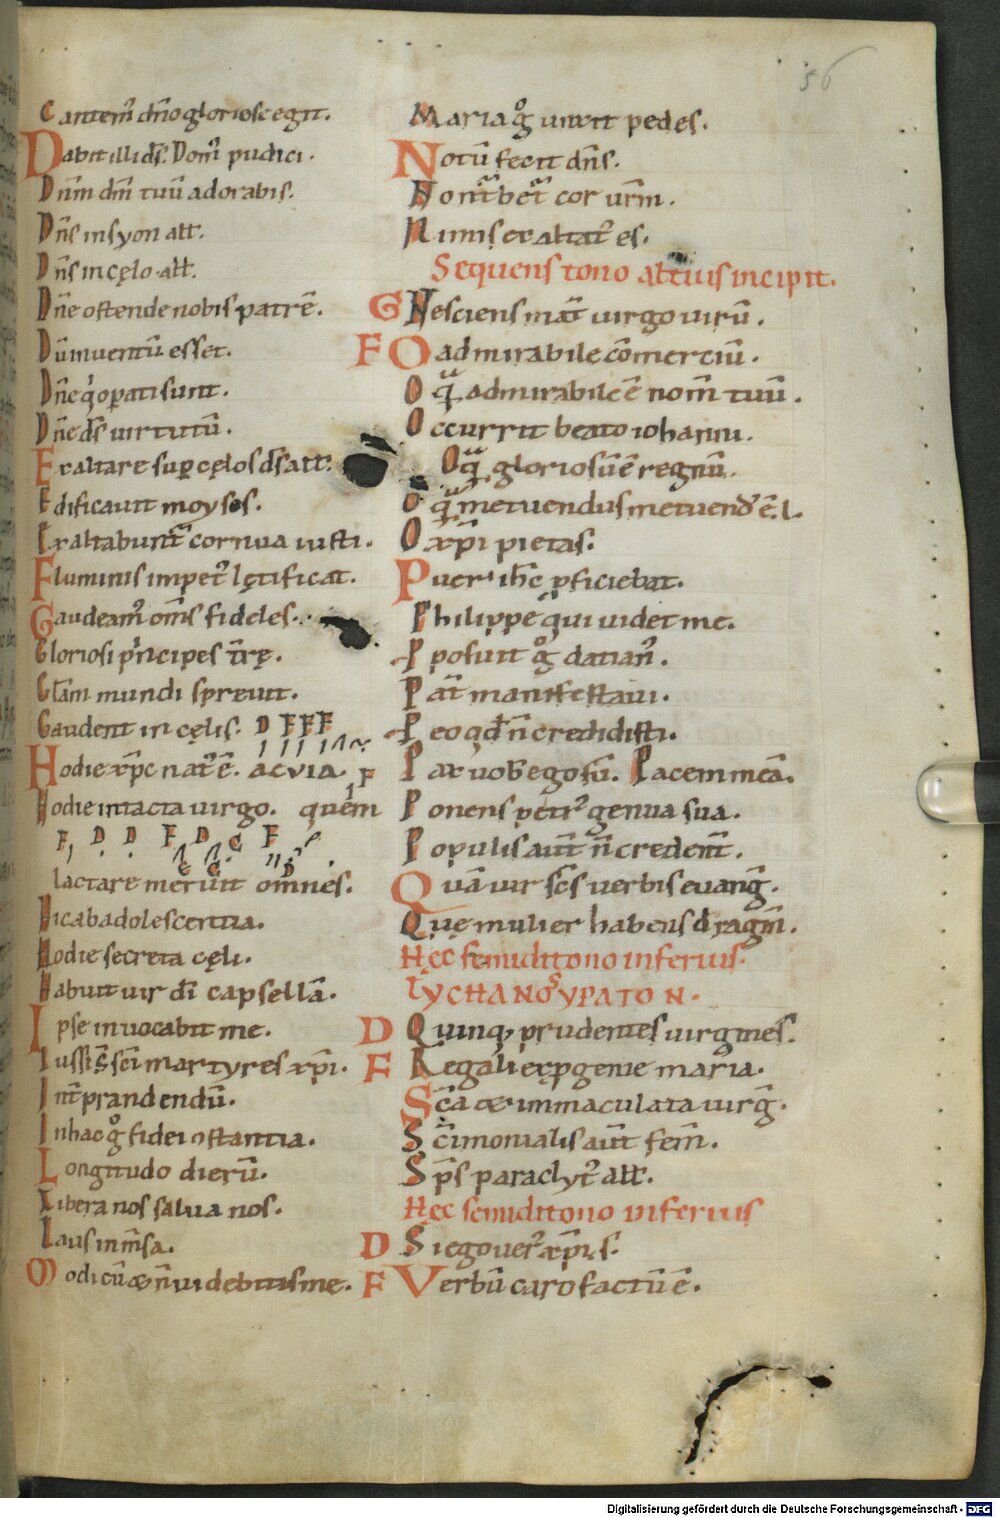 56
Cantem᷒ dn̄o gloriose egit.
Dabit illi ds̄. Dom᷒ pudici.
Dn̄m dm̄ tuū adorabis.
Dn̄s in syon alt̄.
Dn̄s in cęlo alt̄.
Dn̄e ostende nobis patrē.
Dū inuentū esset.
Dn̄e qͥ opati sunt.
Dn̄e ds̄ uirtutū.
Exaltare sup cęlos ds̄ alt̄.
Edificauit moyses.
Exaltabunt᷒ cornua iusti.
Fluminis impet᷒ lętificat.
Gaudeam᷒ om̄s fideles.
Gloriosi pͥncipes t̄rę.
Gl̄am mundi spreuit.
Gaudent in cęlis. D F F F
Hodie xp̄c nat᷒ ē. acvia. F
Hodie intacta uirgo. quem
F D D F D C F
lactare meruit omnes.
Hic ab adolescentia.
Hodie secreta cęli.
Habuit uir dī capsellā.
Ipse inuocabit me.
Iussi s̄ sc̄i martyres xp̄i.
Int̄ prandendū.
In hac gͦ fidei ɔstantia.
Longitudo dierū.
Libera nos salua nos.
Laus in m̄sa.
Modicū & n̄ uidebitis me.
Maria gͦ unxit pedes.
Notū fecit dn̄s.
Non tᷓbet᷒ cor ur̄m.
Nimis exaltat᷒ es.
Sequens tono altius incipit.
G Nesciens mat̄ uirgo uirū.
F O admirabile cōmertiū.
O qᷓ admirabile ē nom̄ tuū.
Occurrit beato iohanni.
O qᷓ gloriosū ē regnū.
O qᷓ metuendus metuend᷒ ē. l.
O xp̄i pietas.
Puer ih̄c pficiebat.
Philippe qui uidet me.
Pposuit gͦ datian᷒.
Pat̄ manifestaui.
P eo qd̄ n̄ credidisti.
Pax uob̄ ego sū. Pacem meā.
Ponens petr᷒ genua sua.
Populis aūt n̄ credent̄.
Quā uir sc̄s uerbis euanḡ.
Que mulier habens dragm̄.
Hęc semiditono inferius.
LYCHANOS YPATON.
D Quinq; prudentes uirgines.
F Regali ex pgenie maria.
Sc̄a & immaculata uirḡ.
Sc̄imonialis aūt fem̄.
Sp̄s paraclyt᷒ alt̄.
Hęc semiditono inferius
D Si ego uer᷒ xp̄i s.
F Verbū caro factū ē.
Digitalisierung gefördert durch die Deutsche Forschungsgemeinschaft - DFG